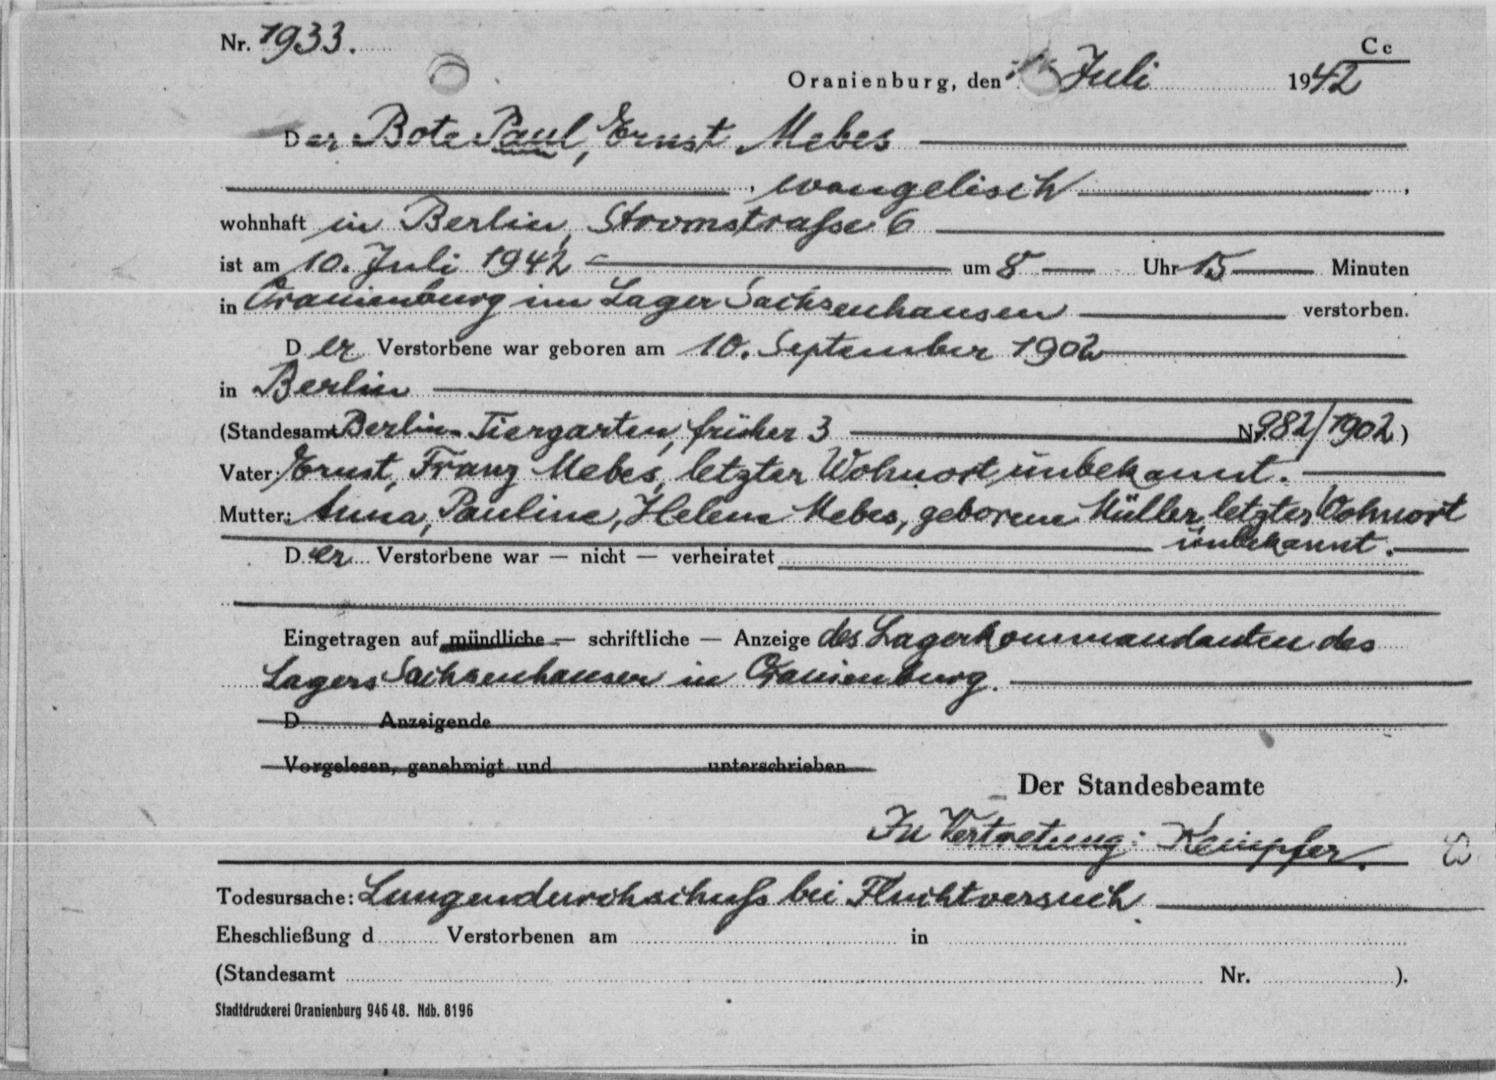 Nr. 1933.
Cc
Oranienburg, den Juli 1942
Der Bote Paul, Ernst Mebes
, evangelisch ,
wohnhaft in Berlin, Stromstraße 6
ist am 10. Juli 1942 um 8 Uhr 15 Minuten
in Oranienburg im Lager Sachsenhausen verstorben.
Der Verstorbene war geboren am 10. September 1902
in Berlin
(Standesamt Berlin-Tiergarten, früher 3 Nr. 982/1902)
Vater: Ernst, Franz Mebes, letzter Wohnort unbekannt.
Mutter: Anna, Pauline, Helene Mebes, geborene Müller, letzter Wohnort
unbekannt.
Der Verstorbene war — nicht — verheiratet
Eingetragen auf mündliche — schriftliche — Anzeige des Lagerkommandanten des
Lagers Sachsenhausen in Oranienburg.
D Anzeigende
Vorgelesen, genehmigt und unterschrieben
Der Standesbeamte
In Vertretung: Kempfer.
Todesursache: Lungendurchschuß bei Fluchtversuch.
Eheschließung d Verstorbenen am in
(Standesamt Nr. ).
Stadtdruckerei Oranienburg 946 48. Ndb. 8196